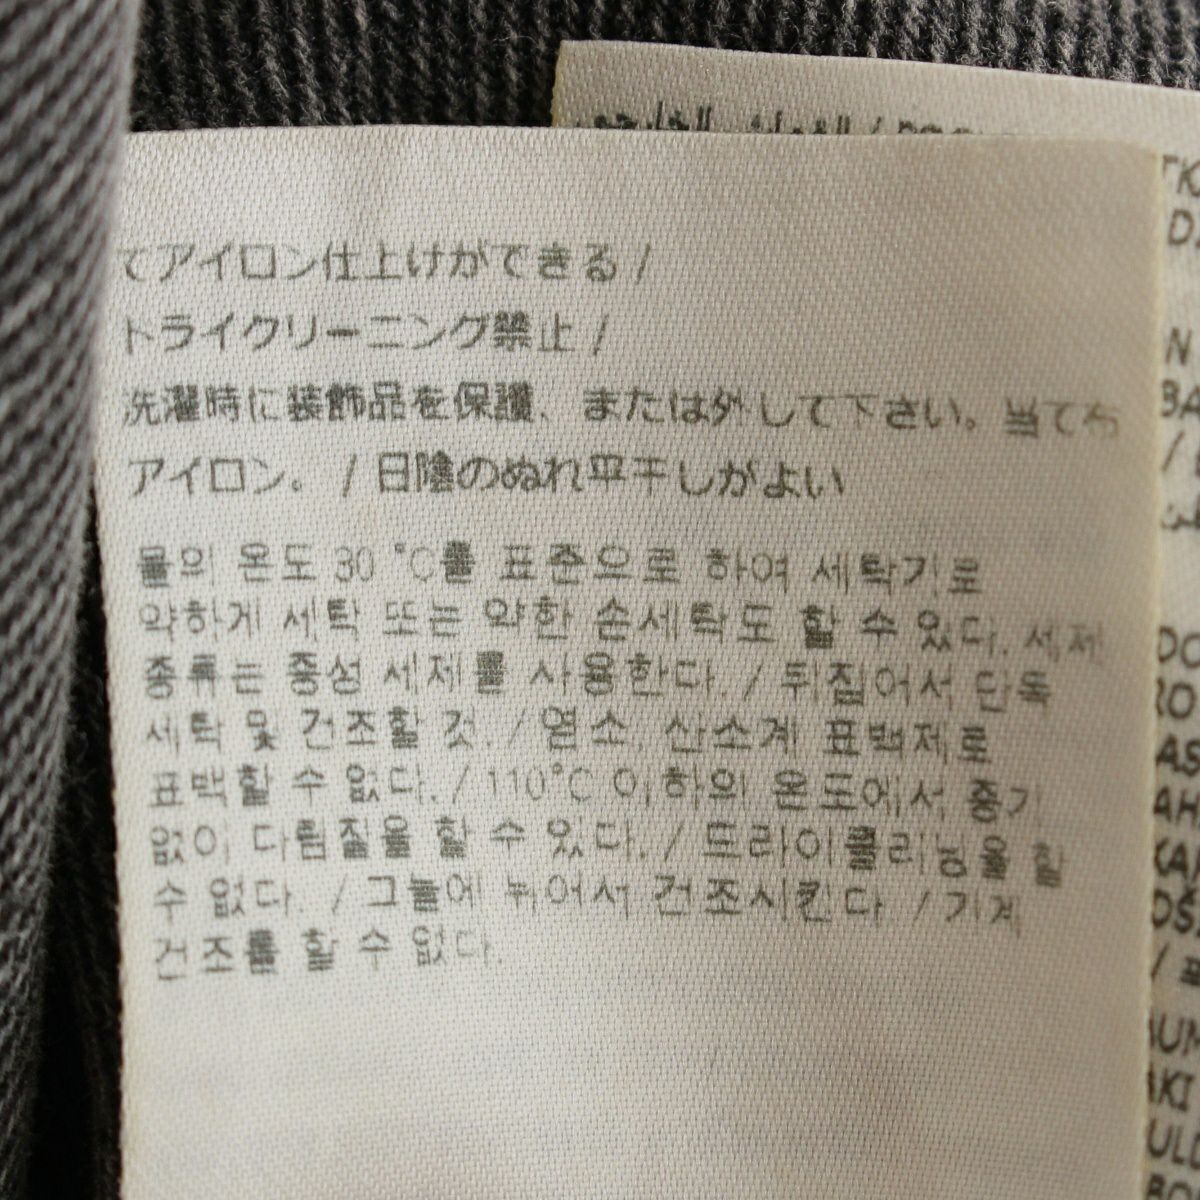 てアイロン仕上げができる /
ドライクリーニング禁止 /
洗濯時に装飾品を保護、または外して下さい。当て布
アイロン。 / 日陰のぬれ平干しがよい
물의 온도 30 °C를 표준으로 하여 세탁기로
약하게 세탁 또는 약한 손세탁도 할 수 있다. 세제
종류는 중성 세제를 사용한다. / 뒤집어서 단독
세탁 및 건조할 것. / 염소, 산소계 표백제로
표백할 수 없다. / 110°C 이하의 온도에서 증기
없이 다림질을 할 수 있다. / 드라이클리닝을 할
수 없다. / 그늘에 뉘어서 건조시킨다 / 기계
건조를 할 수 없다.
DA
N
BA
/
DO
RO
AS
AH
KA
OŠ
/ #
AUM
AKI
ULD
BO